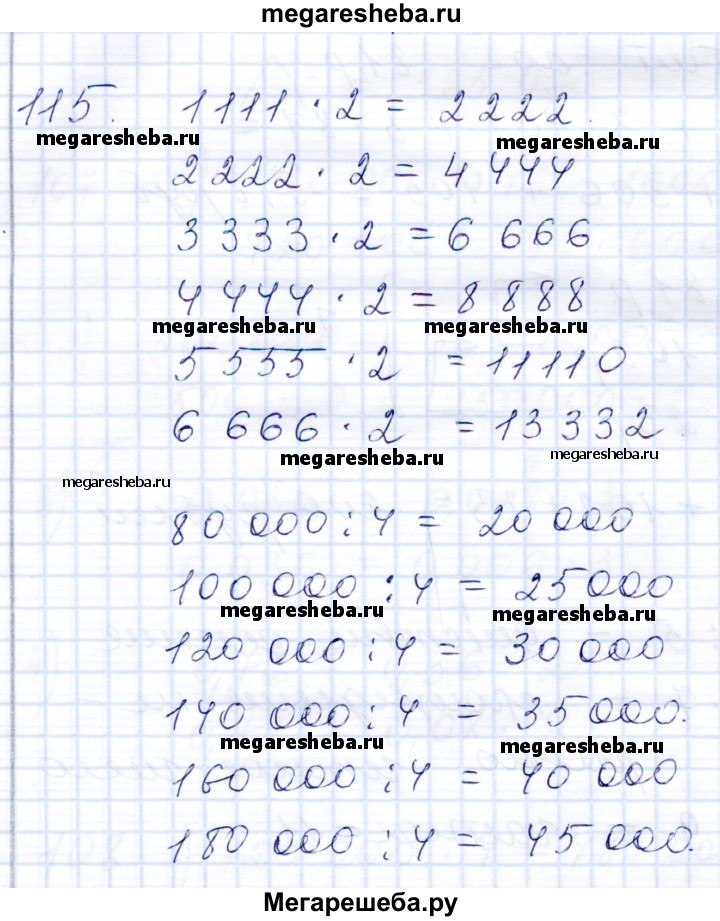 megaresheba.ru
115. 1111 · 2 = 2222.
megaresheba.ru megaresheba.ru
2222 · 2 = 4 444
3 333 · 2 = 6 666
4 444 · 2 = 8 888
megaresheba.ru megaresheba.ru
5 555 · 2 = 11110
6 666 · 2 = 13 332
megaresheba.ru megaresheba.ru
megaresheba.ru
80 000 : 4 = 20 000
100 000 : 4 = 25000
megaresheba.ru megaresheba.ru
120 000 : 4 = 30 000
140 000 : 4 = 35000.
megaresheba.ru megaresheba.ru
160 000 : 4 = 40 000
180 000 : 4 = 45000.
Мегарешеба.ру